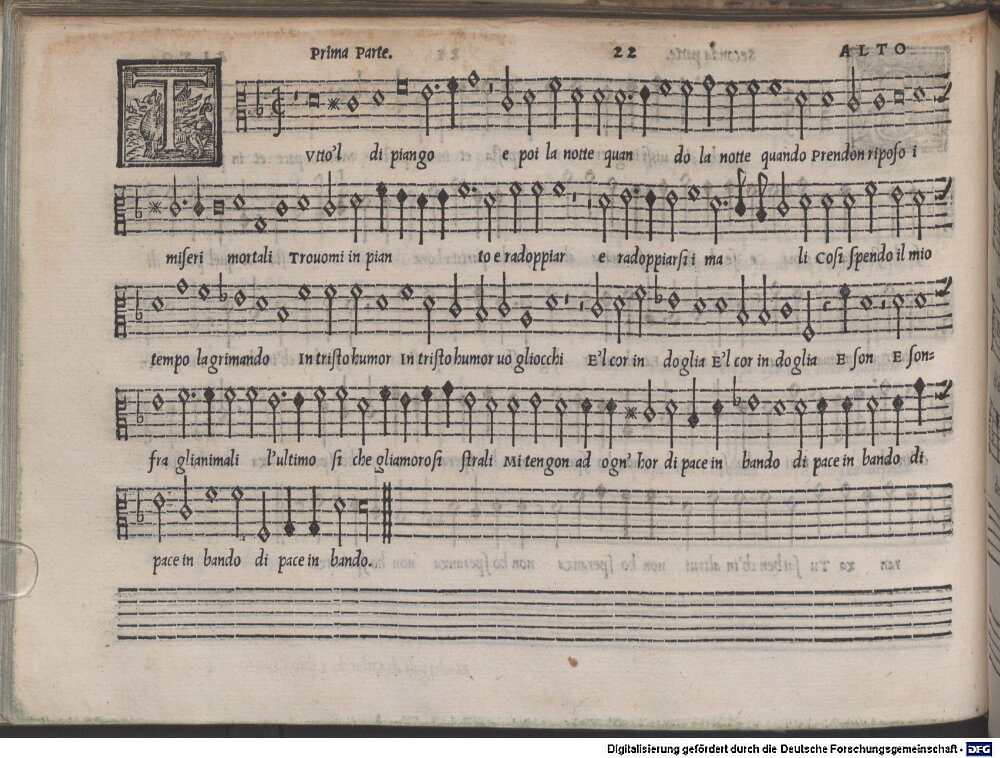 Prima Parte. 22 ALTO
T
Vtto'l di piango e poi la notte quan do la notte quando Prendon riposo i
miseri mortali Trouomi in pian to e radoppiar e radoppiarsi i ma li Cosi spendo il mio
tempo lagrimando In tristo humor In tristo humor uo gliocchi E'l cor in doglia E'l cor in doglia E son E son=
fra glianimali l'ultimo si che gliamorosi strali Mi tengon ad ogn' hor di pace in bando di pace in bando di
pace in bando di pace in bando.
Digitalisierung gefördert durch die Deutsche Forschungsgemeinschaft - DFG